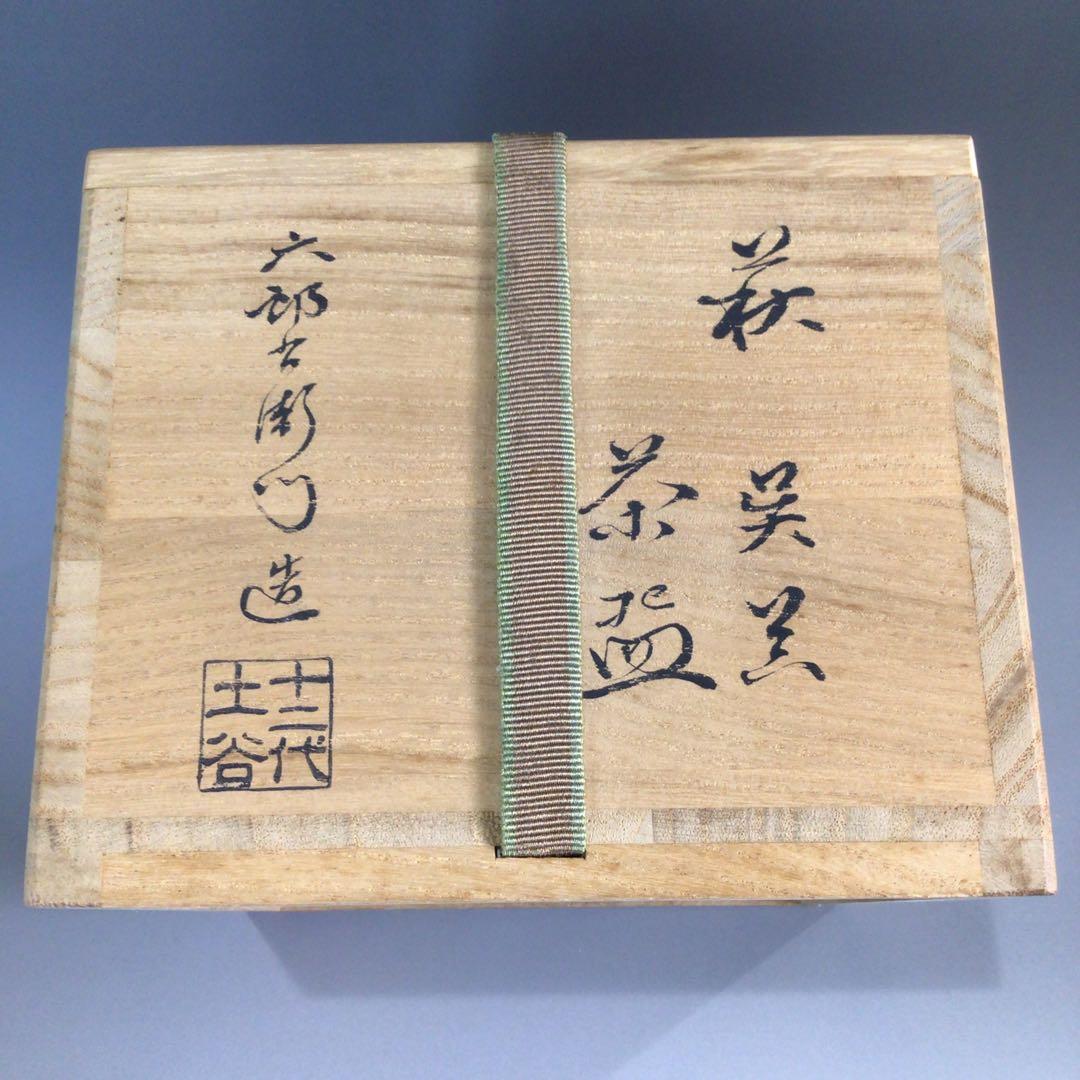 萩 呉器
茶盌
六郎左衛門造
十二代
土谷